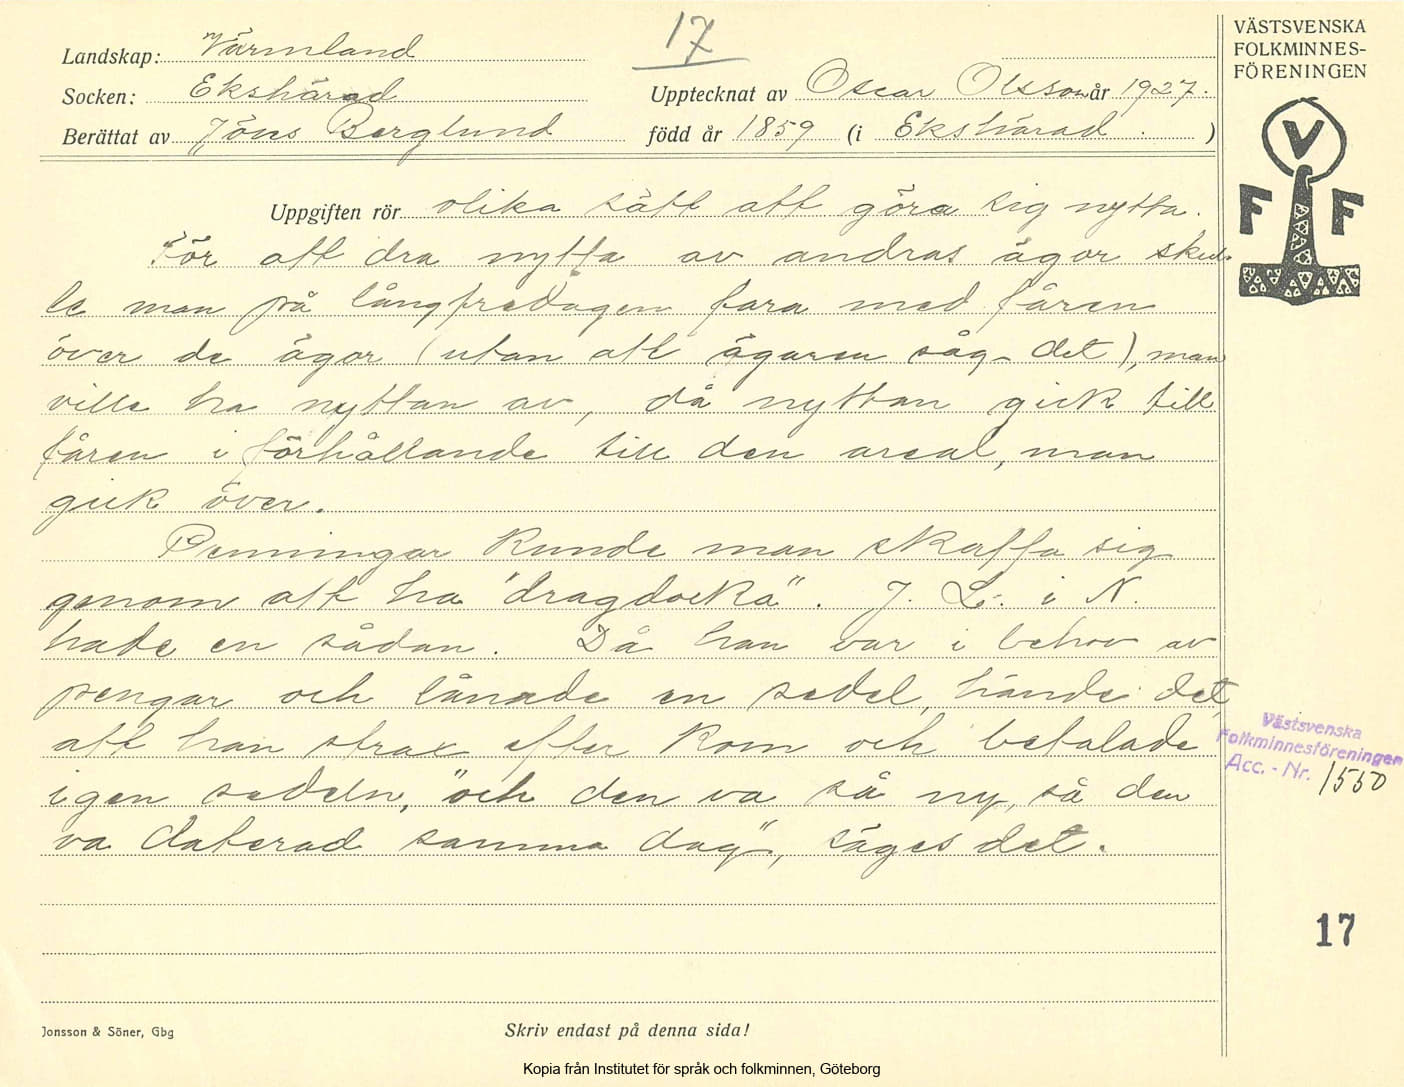 17
VÄSTSVENSKA
FOLKMINNES-
FÖRENINGEN
Landskap: Värmland
Socken: Ekshärad
Upptecknat av Oscar Olsson år 1927.
Berättat av Jöns Berglund född år 1859 (i Ekshärad . )
V
F F
Uppgiften rör olika sätt att göra sig nytta.
För att dra nytta av andras ägor skul-
le man på långfredagen fara med fåren
över de ägor (utan att ägaren såg det), man
ville ha nyttan av, då nyttan gick till
fåren i förhållande till den areal, man
gick över.
Penningar kunde man skaffa sig
genom att ha "dragdocka". J. L. i N.
hade en sådan. Då han var i behov av
pengar och lånade en sedel, hände det,
att han strax efter kom och betalade
igen sedeln, "och den va så ny, så den
va daterad samma dag", säges det.
Västsvenska
Folkminnesföreningen
Acc. - Nr. 1550
17
Jonsson & Söner, Gbg
Skriv endast på denna sida!
Kopia från Institutet för språk och folkminnen, Göteborg